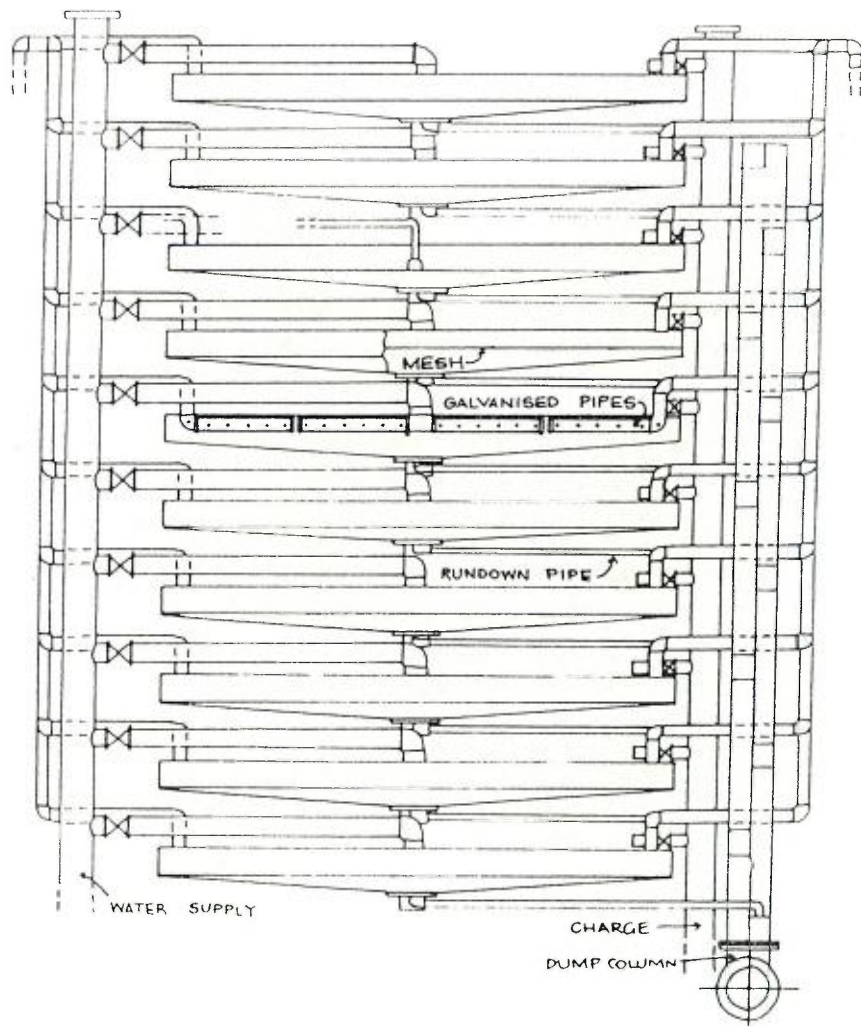 MESH
GALVANISED PIPES
RUNDOWN PIPE
WATER SUPPLY
CHARGE
DUMP COLUMN